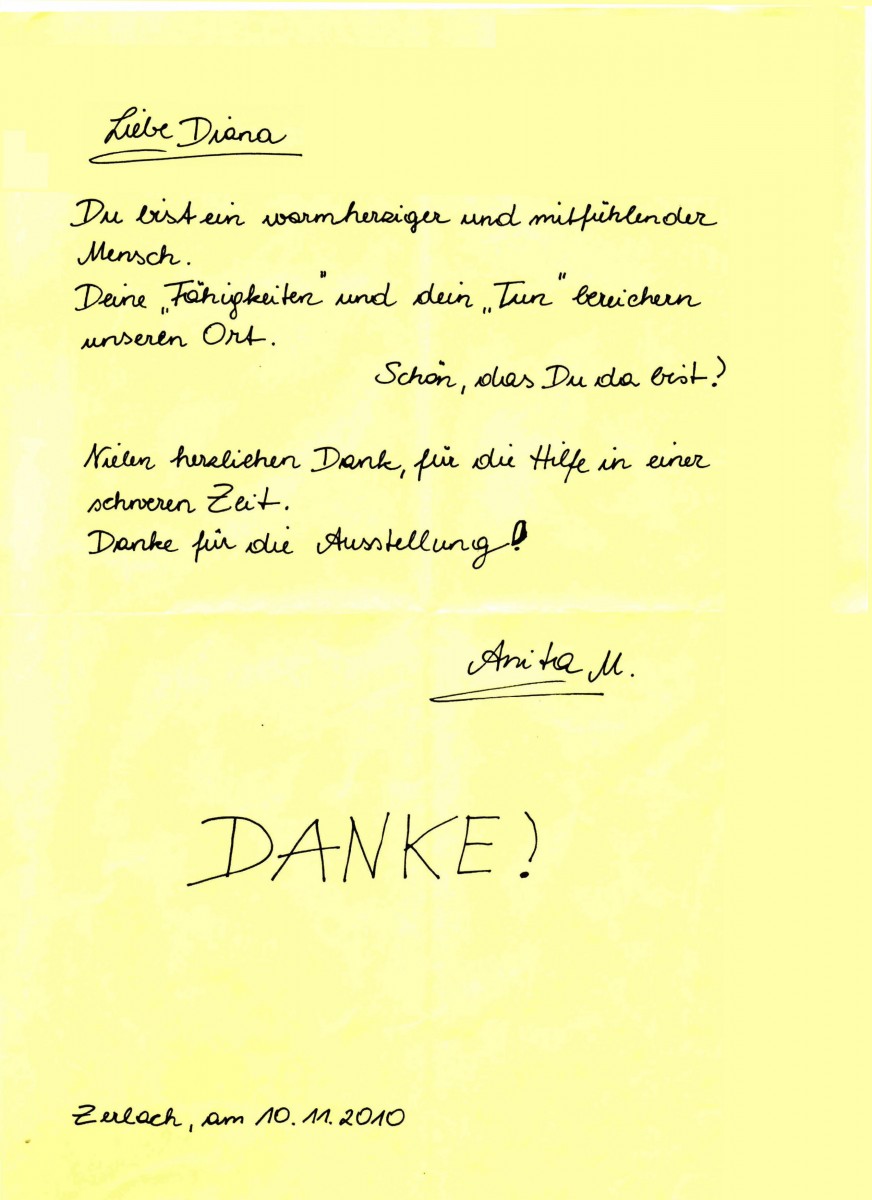 Liebe Diana
Du bist ein warmherziger und mitfühlender
Mensch.
Deine „Fähigkeiten" und dein „Tun" bereichern
unseren Ort.
Schön, das Du da bist!
Vielen herzlichen Dank, für die Hilfe in einer
schweren Zeit.
Danke für die Ausstellung!
Anita M.
DANKE!
Zerlach, am 10.11.2010